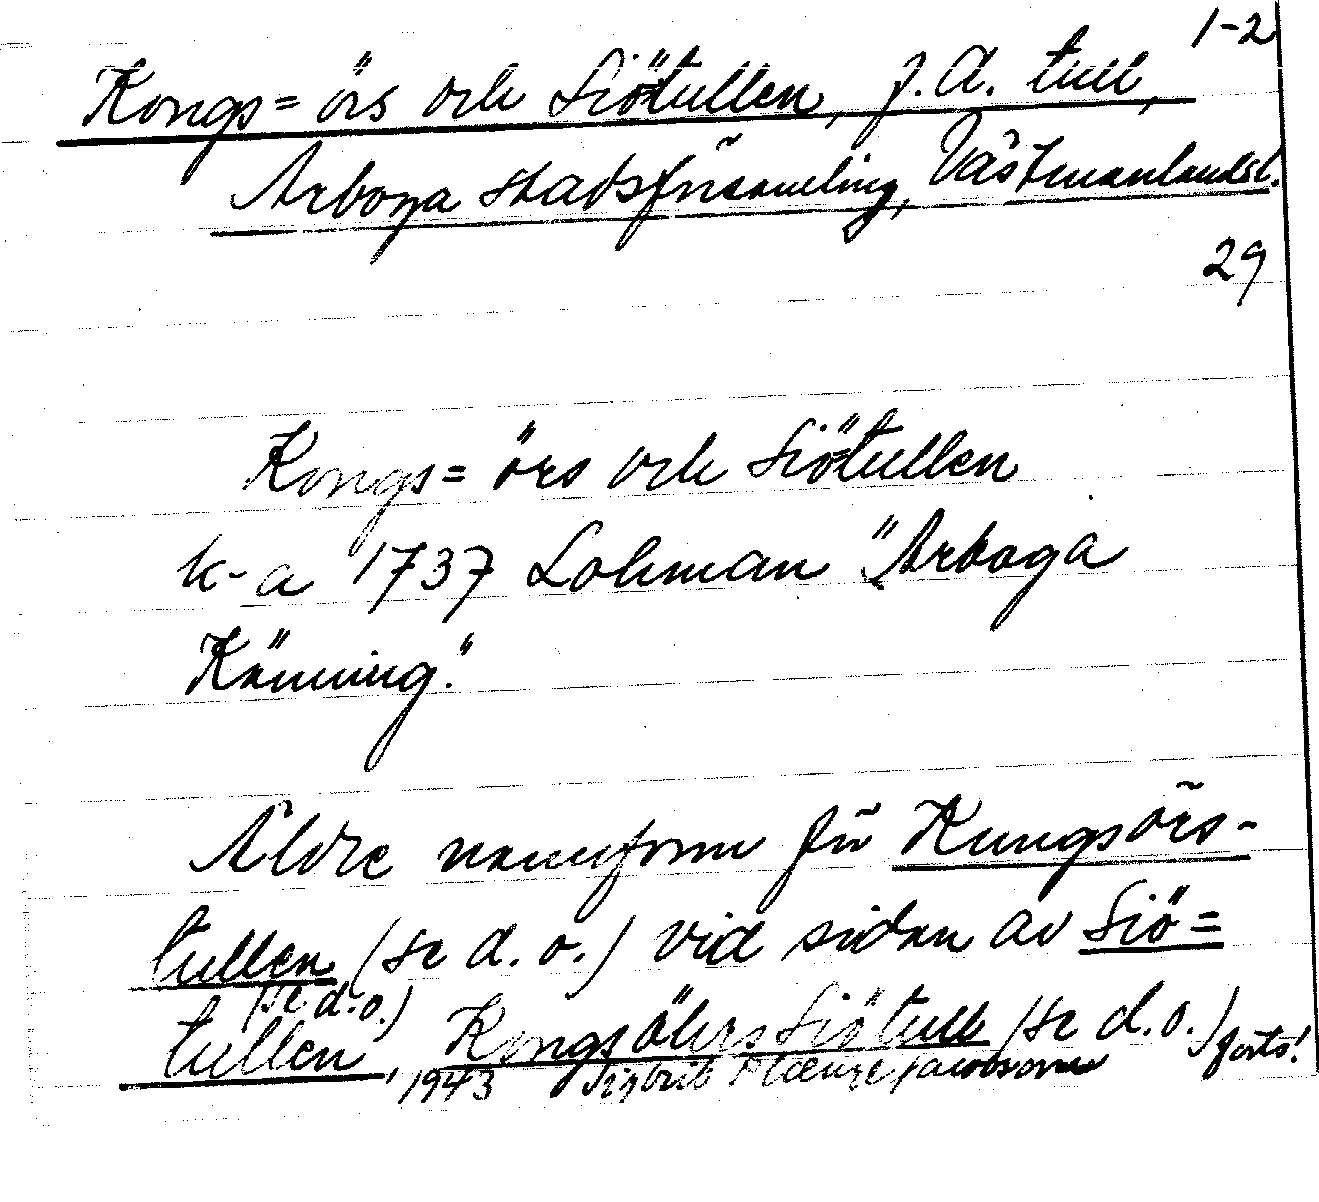 1-2
Kongs= örs och Siötullen, f.d. tull,
Arboga stadsförsamling, Västmanlandsl.
29
Kongs= örs och Siötullen
k-a 1737 Lohman "Arboga
Känning".
Äldre namnform för Kungsörs-
tullen (se d.o.) vid sidan av Siö=
(se d.o.)
tullen, Kongsöhrs Siötull (se d.o.) forts!
1943 Sigbrit Plænge Jacobson